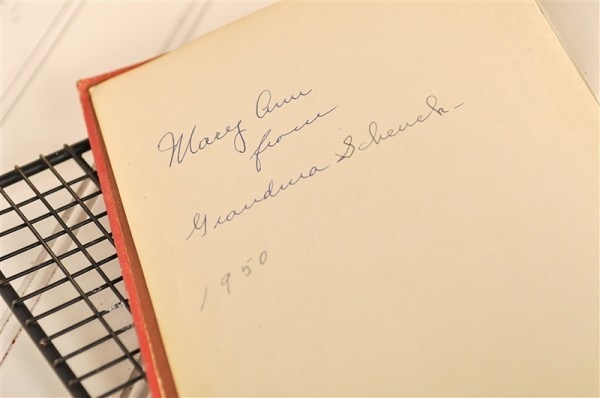 Mary Ann
from
Grandma Schenck
1950